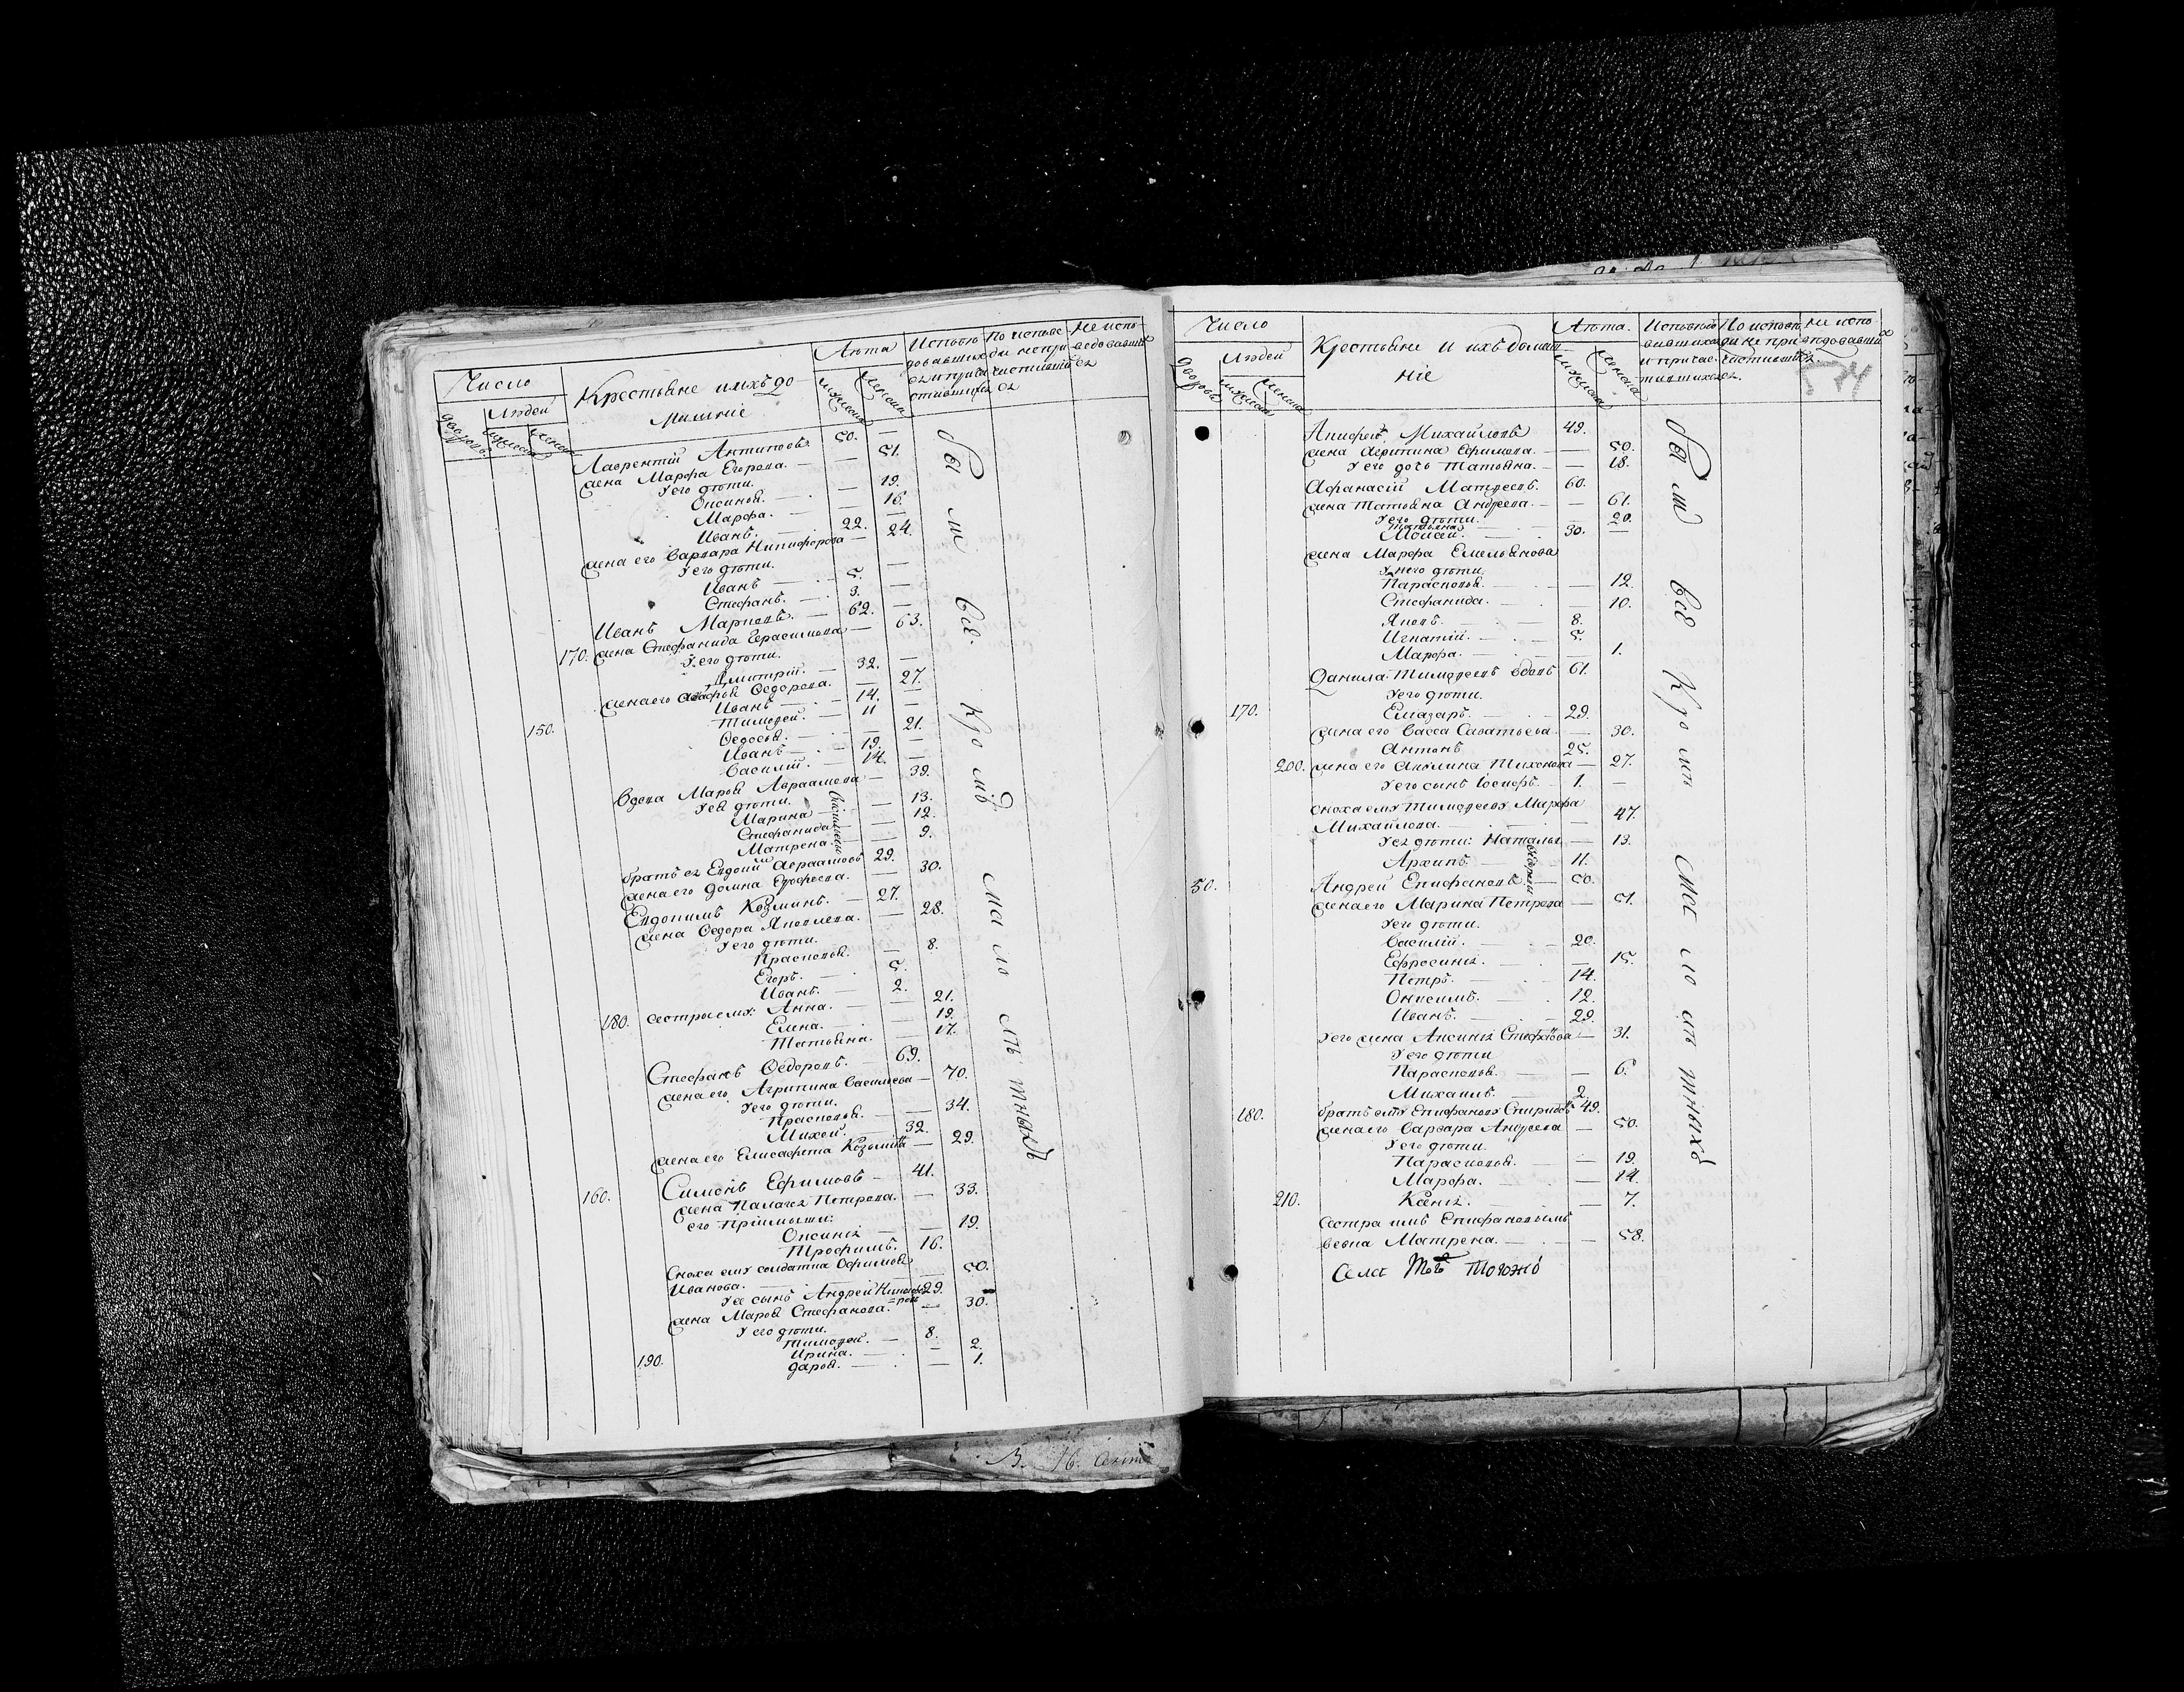 Число
Людей
дворовъ
мужеска
женска
Крестьяне и ихъ до-
машніе
Лѣта
мужеска
женска
Исповѣ По исповѣ Не испо
довавших ди не при ведовавши
ся и прича частившіи ся
стившихся ся
Лаврентій Антиповъ. 50. —
жена Марфа Егорова. — — 51.
У его дѣти.
Оксинья. — — 19.
Марфа. — — 16.
Иванъ. — 22. —
жена его Варвара Никифорова — 24.
У его дѣти.
Иванъ — 5. —
Стефанъ. — 3. —
Иванъ Марковъ. — 62. —
170. жена Стефанида Герасимова — 63.
У его дѣти.
Дмитрій. — 32. —
жена его Агафья Федорова. — 27.
Иванъ — 14. —
Тимоѳей. — 11 —
150. Федосья. — — 21.
Иванъ — 19. —
Василій. — 14. —
Вдова Марья Авраамова — 39.
У ея дѣти.
Марина — — 13.
Стефанида — — 12.
Матрена — — 9.
братъ ея Евдокій Авраамовъ 29.
жена его Домна Ерофеева. — 30.
Евдокимъ Козминъ. — 27.
жена Федора Яковлева. — 28.
У его дѣти.
Прасковья. — 8.
Егоръ. — 5.
Иванъ. — 2.
180. сестры ему: Анна. — — 21.
Елена. — 19.
Татьяна. — 17.
Стефанъ Федоровъ. — 69.
жена его Агрипина Васильева — 70.
У его дѣти.
Прасковья. — — 34.
Михей. — 32.
жена его Елисавета Козьмина — 29.
160. Симонъ Ефимовъ — 41.
жена Палагея Петрова. — 33.
его пріимыши:
Оксинія — — 19.
Трофимъ. 16.
Сноха ему солдатка Офимья
Иванова. — — 50.
У ее сынъ Андрей Никифо 29.
=ровъ
жена Марья Стефанова. — 30.
У его дѣти.
Тимоѳей. — 8.
Ирина. — — 2.
190. Дарья. — — 1.
бы ли всѣ. Кро мѣ ма ло лѣ тныхъ
Число
Людей
дворовъ
мужеска
женска
Крестьяне и ихъ домаш
ніе
Лѣта.
мужеска
женска
Исповѣдо По исповѣ Не испо
вавшихся ди не при вѣдовавши
и причас частившіи ся
тившихся ся.
Аникей Михайловъ 49.
жена Агрипина Ефимова. — — 50.
У его дочь Татьяна. — — 18.
Афанасій Матвеевъ. 60.
жена Татьяна Андреева. — — 61.
У его дѣти.
Татьяна — — 20.
Моисей. — 30. —
жена Марфа Емельянова
У него дѣти.
Парасковья. — — 12.
Стефанида. — — 10.
Яковъ. — 8.
Игнатій. — 5.
Марфа. — — 1.
Данила Тимоѳеевъ вдовъ 61.
У его дѣти.
170. Елазаръ. — 29.
жена его Васса Саватьева. — 30.
Антонъ 25.
200. жена его Акилина Тихонова — 27.
У его сынъ Іосифъ. — 1. —
сноха ему Тимоѳееву Марфа
Михайлова. — — 47.
У ея дѣти: Наталья — 13.
Архипъ. — 11.
50. Андрей Епифановъ. — 50.
жена его Марина Петрова — 51.
У его дѣти.
Василій. — 20.
Ефросинія. — — 15.
Петръ. — 14.
Онисимъ. — 12.
Иванъ. — 29.
У его жена Аксинія Стефанова — 31.
У его дѣти
Парасковья. — — 6.
Михаилъ. — 2.
180. братъ ему Епифанову Спиридонъ 49.
жена его Варвара Андреева — 50.
У его дѣти.
Парасковья. — — 19.
Марфа. — — 14.
210. Ксенія. — — 7.
Сестра имъ Епифановымъ
девка Матрена. — — 58.
Села того тогожъ
бы ли всѣ Кро мѣ мас ло лѣ тныхъ